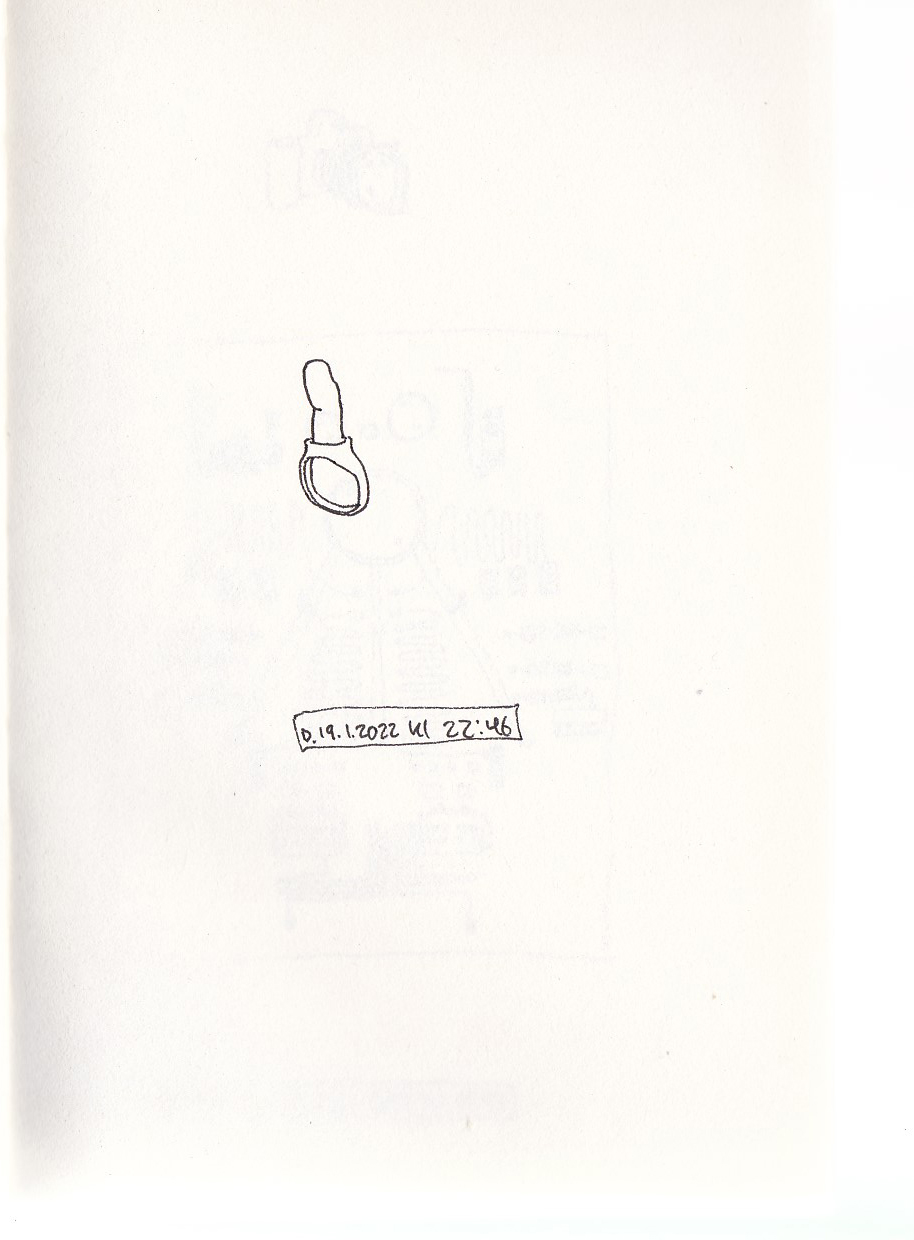 D. 19.1.2022 kl 22:46